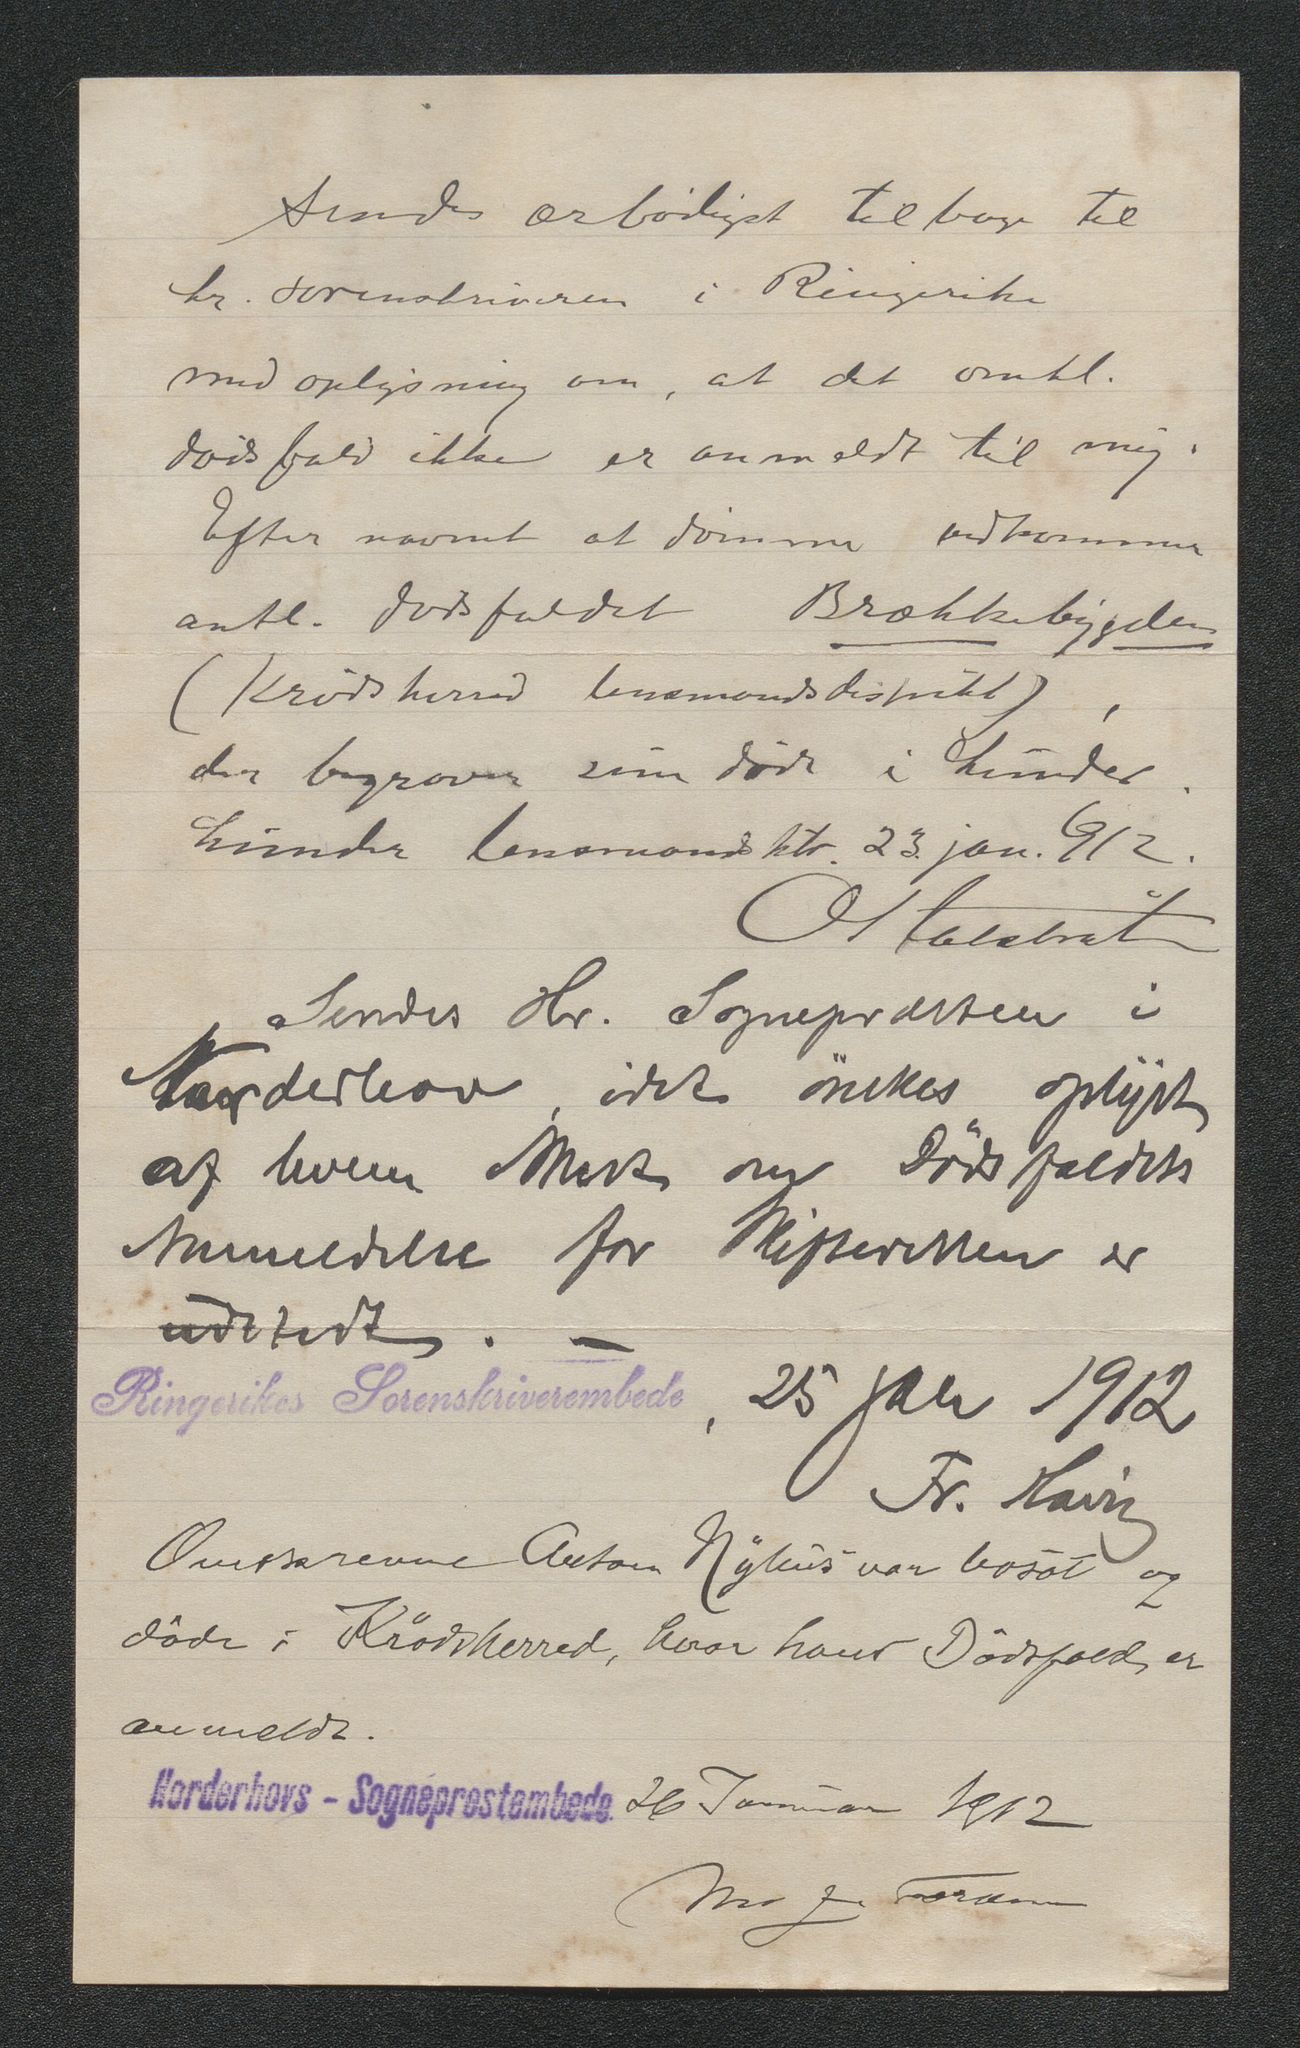 Sendes ærbødigst tilbage til
hr. sorenskriveren i Ringerike
med oplysning om, at det omtl.
dødsfald ikke er anmeldt til mig.
Efter navnet at dømme vedkommer
antl. dødsfaldet Brækkebygden
(Krødsherred lensmandsdistrikt),
der begraver sine døde i Lunder.
Lunder lensmandsktr. 23. jan. 1912.
Sendes Hr. Sognepræsten i
Norderhov, idet önskes oplyst
af hvem Attest om Dödsfaldets
Anmeldelse for Skifteretten er
udstedt. —
Ringerikes Sorenskriverembede, 25 Jan 1912
Fr.
Omskrevne Anton Nyhus var bosat og
döde i Krödsherred, hvor hans Dödsfald er
anmeldt.
Norderhovs - Sogneprestembede. 26 Januar 1912